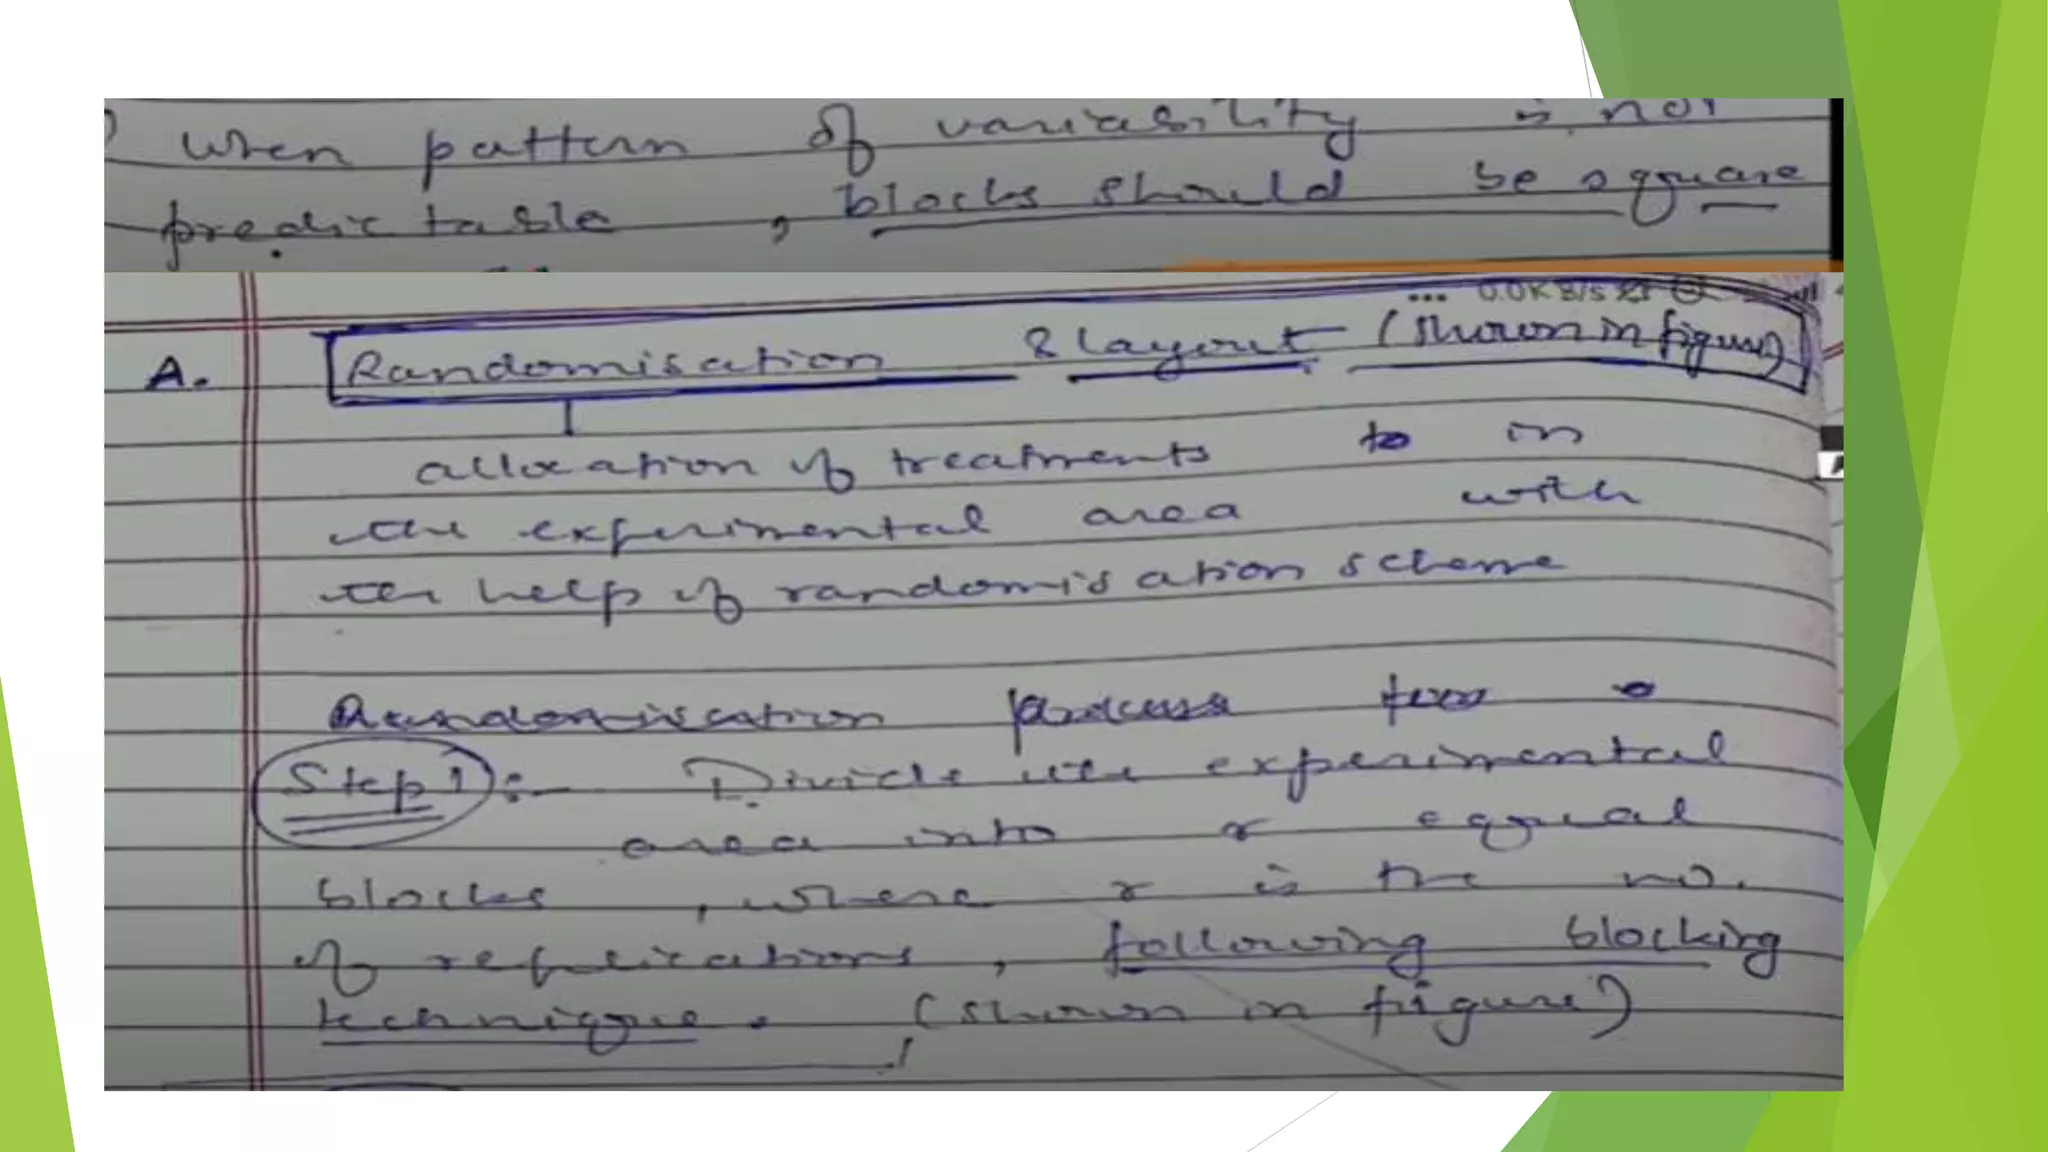 when pattern of variability is not
predictable , blocks should be square
... 0.0KB/S
A. Randomisation & layout (shown in figure)
allocation of treatments to in
the experimental area with
the help of randomisation scheme
Randomisation process
Step 1 :- Divide the experimental
area into r equal
blocks , where r is the no.
of replications , following blocking
technique. (shown in figure)